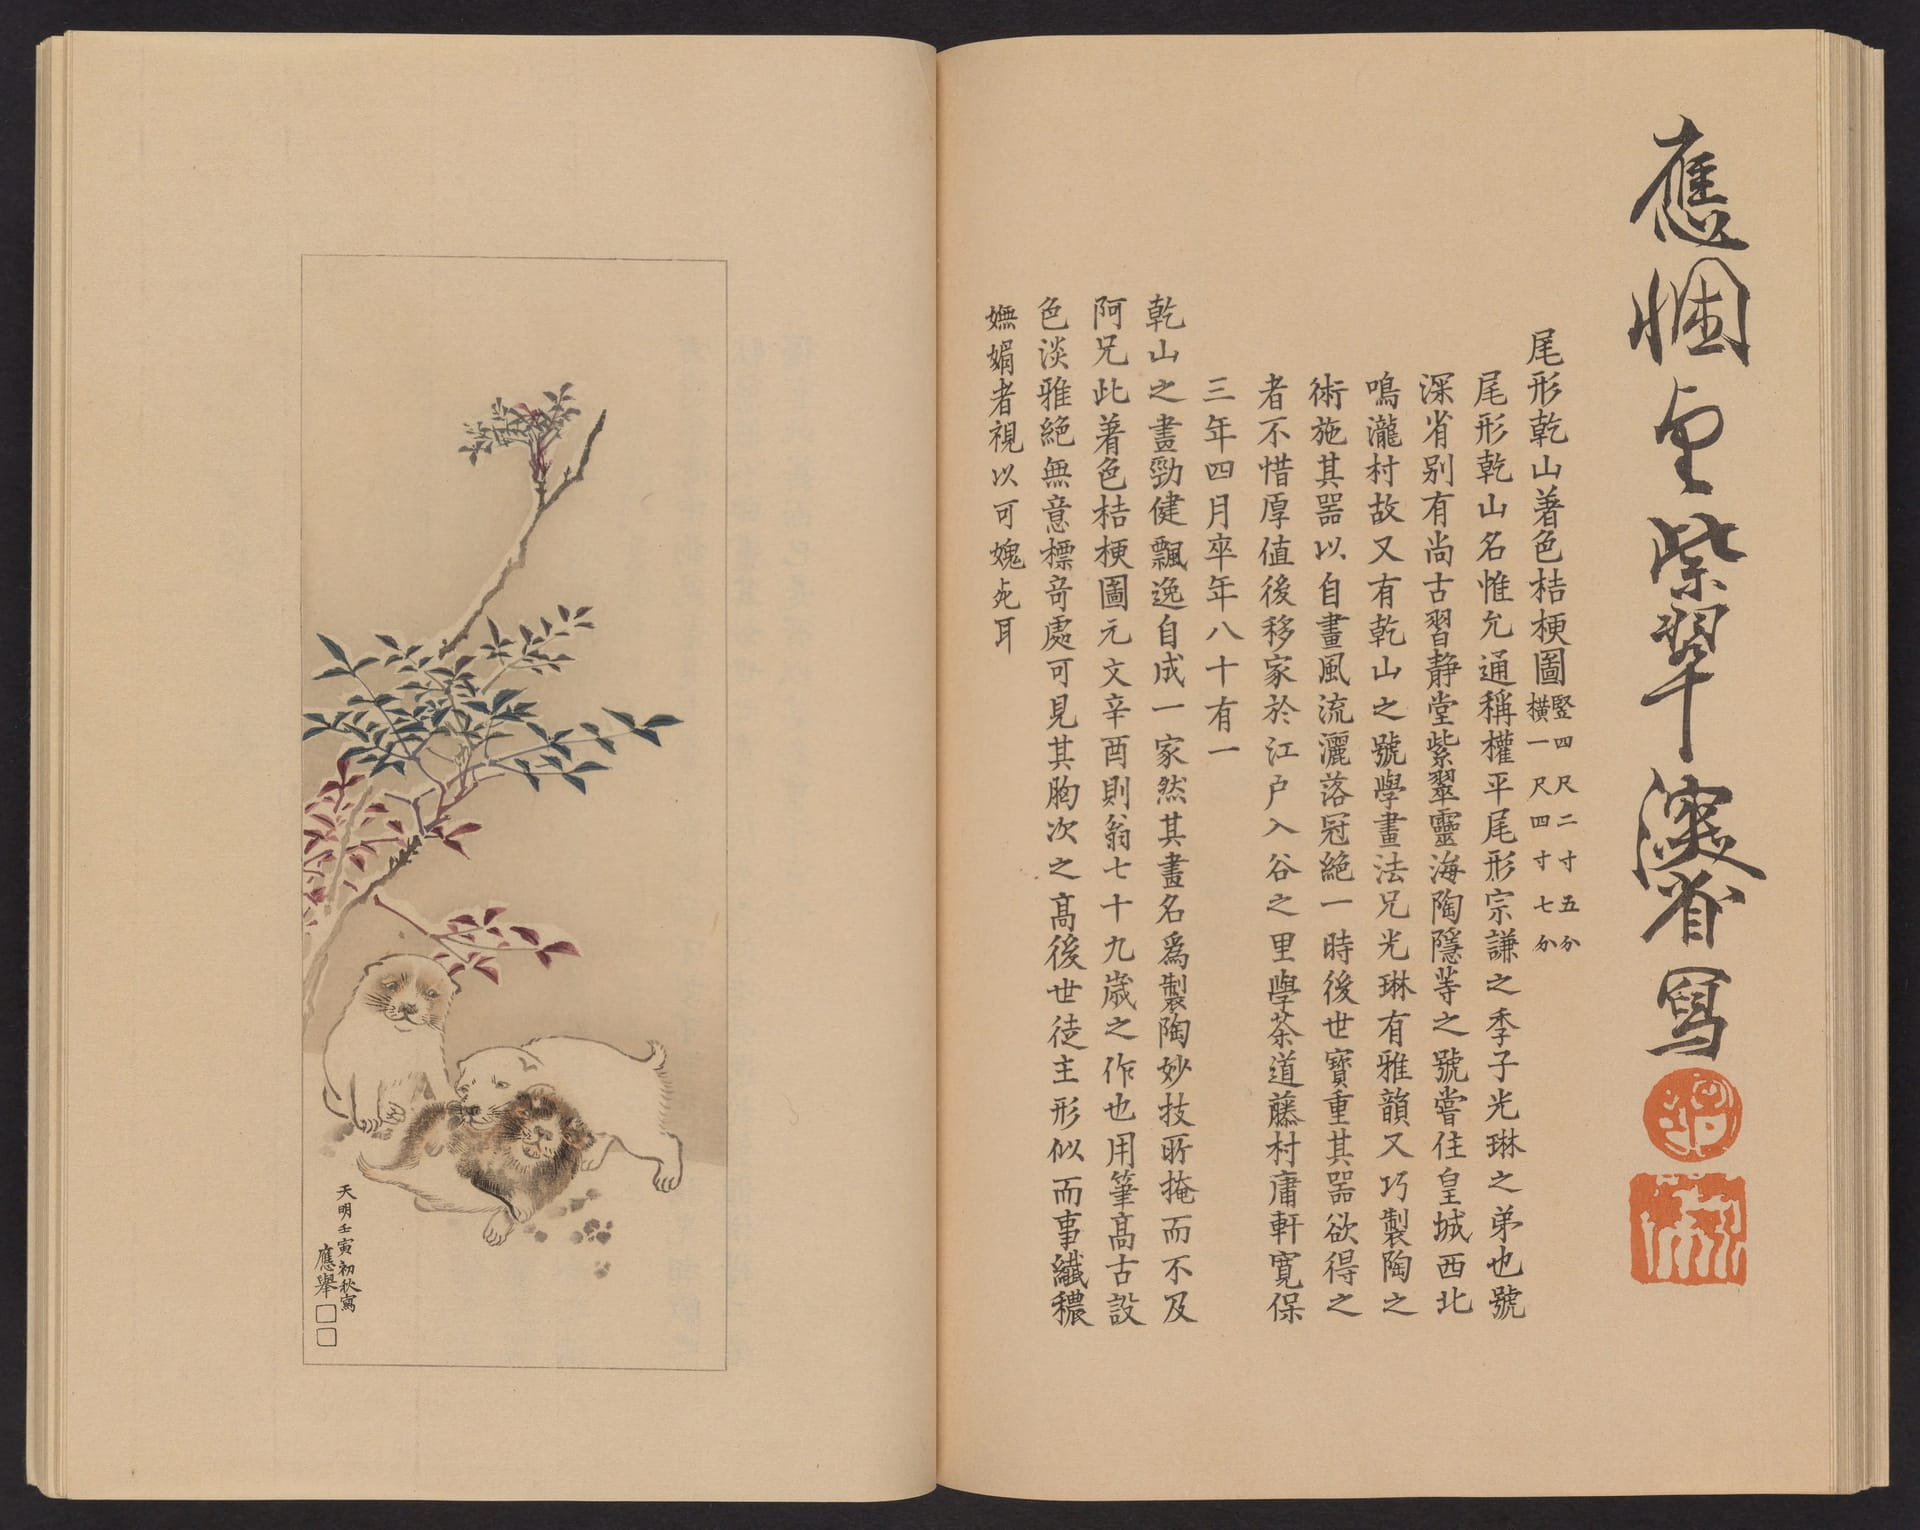 應個皇紫翠深省写
尾形乾山著色桔梗圖 竪四尺二寸五分 横一尺四寸七分
尾形乾山名惟允通稱權平尾形宗謙之季子光琳之弟也號
深省别有尚古習静堂紫翠靈海陶隱等之號嘗住皇城西北
鳴瀧村故又有乾山之號學畫法兄光琳有雅韻又巧製陶之
術施其器以自畫風流灑落冠絶一時後世寳重其器欲得之
者不惜厚値後移家於江戸入谷之里學茶道藤村庸軒寛保
三年四月卒年八十有一
乾山之畫勁健飄逸自成一家然其畫名爲製陶妙技所掩而不及
阿兄此著色桔梗圖元文辛酉則翁七十九歳之作也用筆高古設
色淡雅絶無意標奇處可見其胸次之高後世徒主形似而事纎穠
嫵媚者視以可媿死耳
天明壬寅初秋寫
應舉